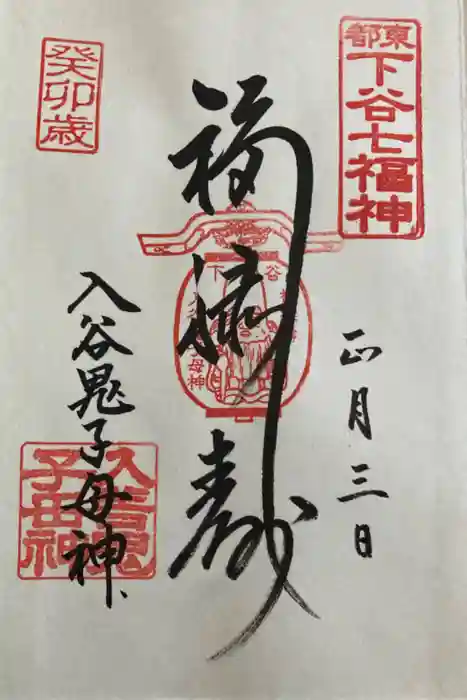 東都
下谷七福神
正月三日
福禄寿
下谷
子母神
癸卯歳
入谷鬼子母神
入谷鬼子母神